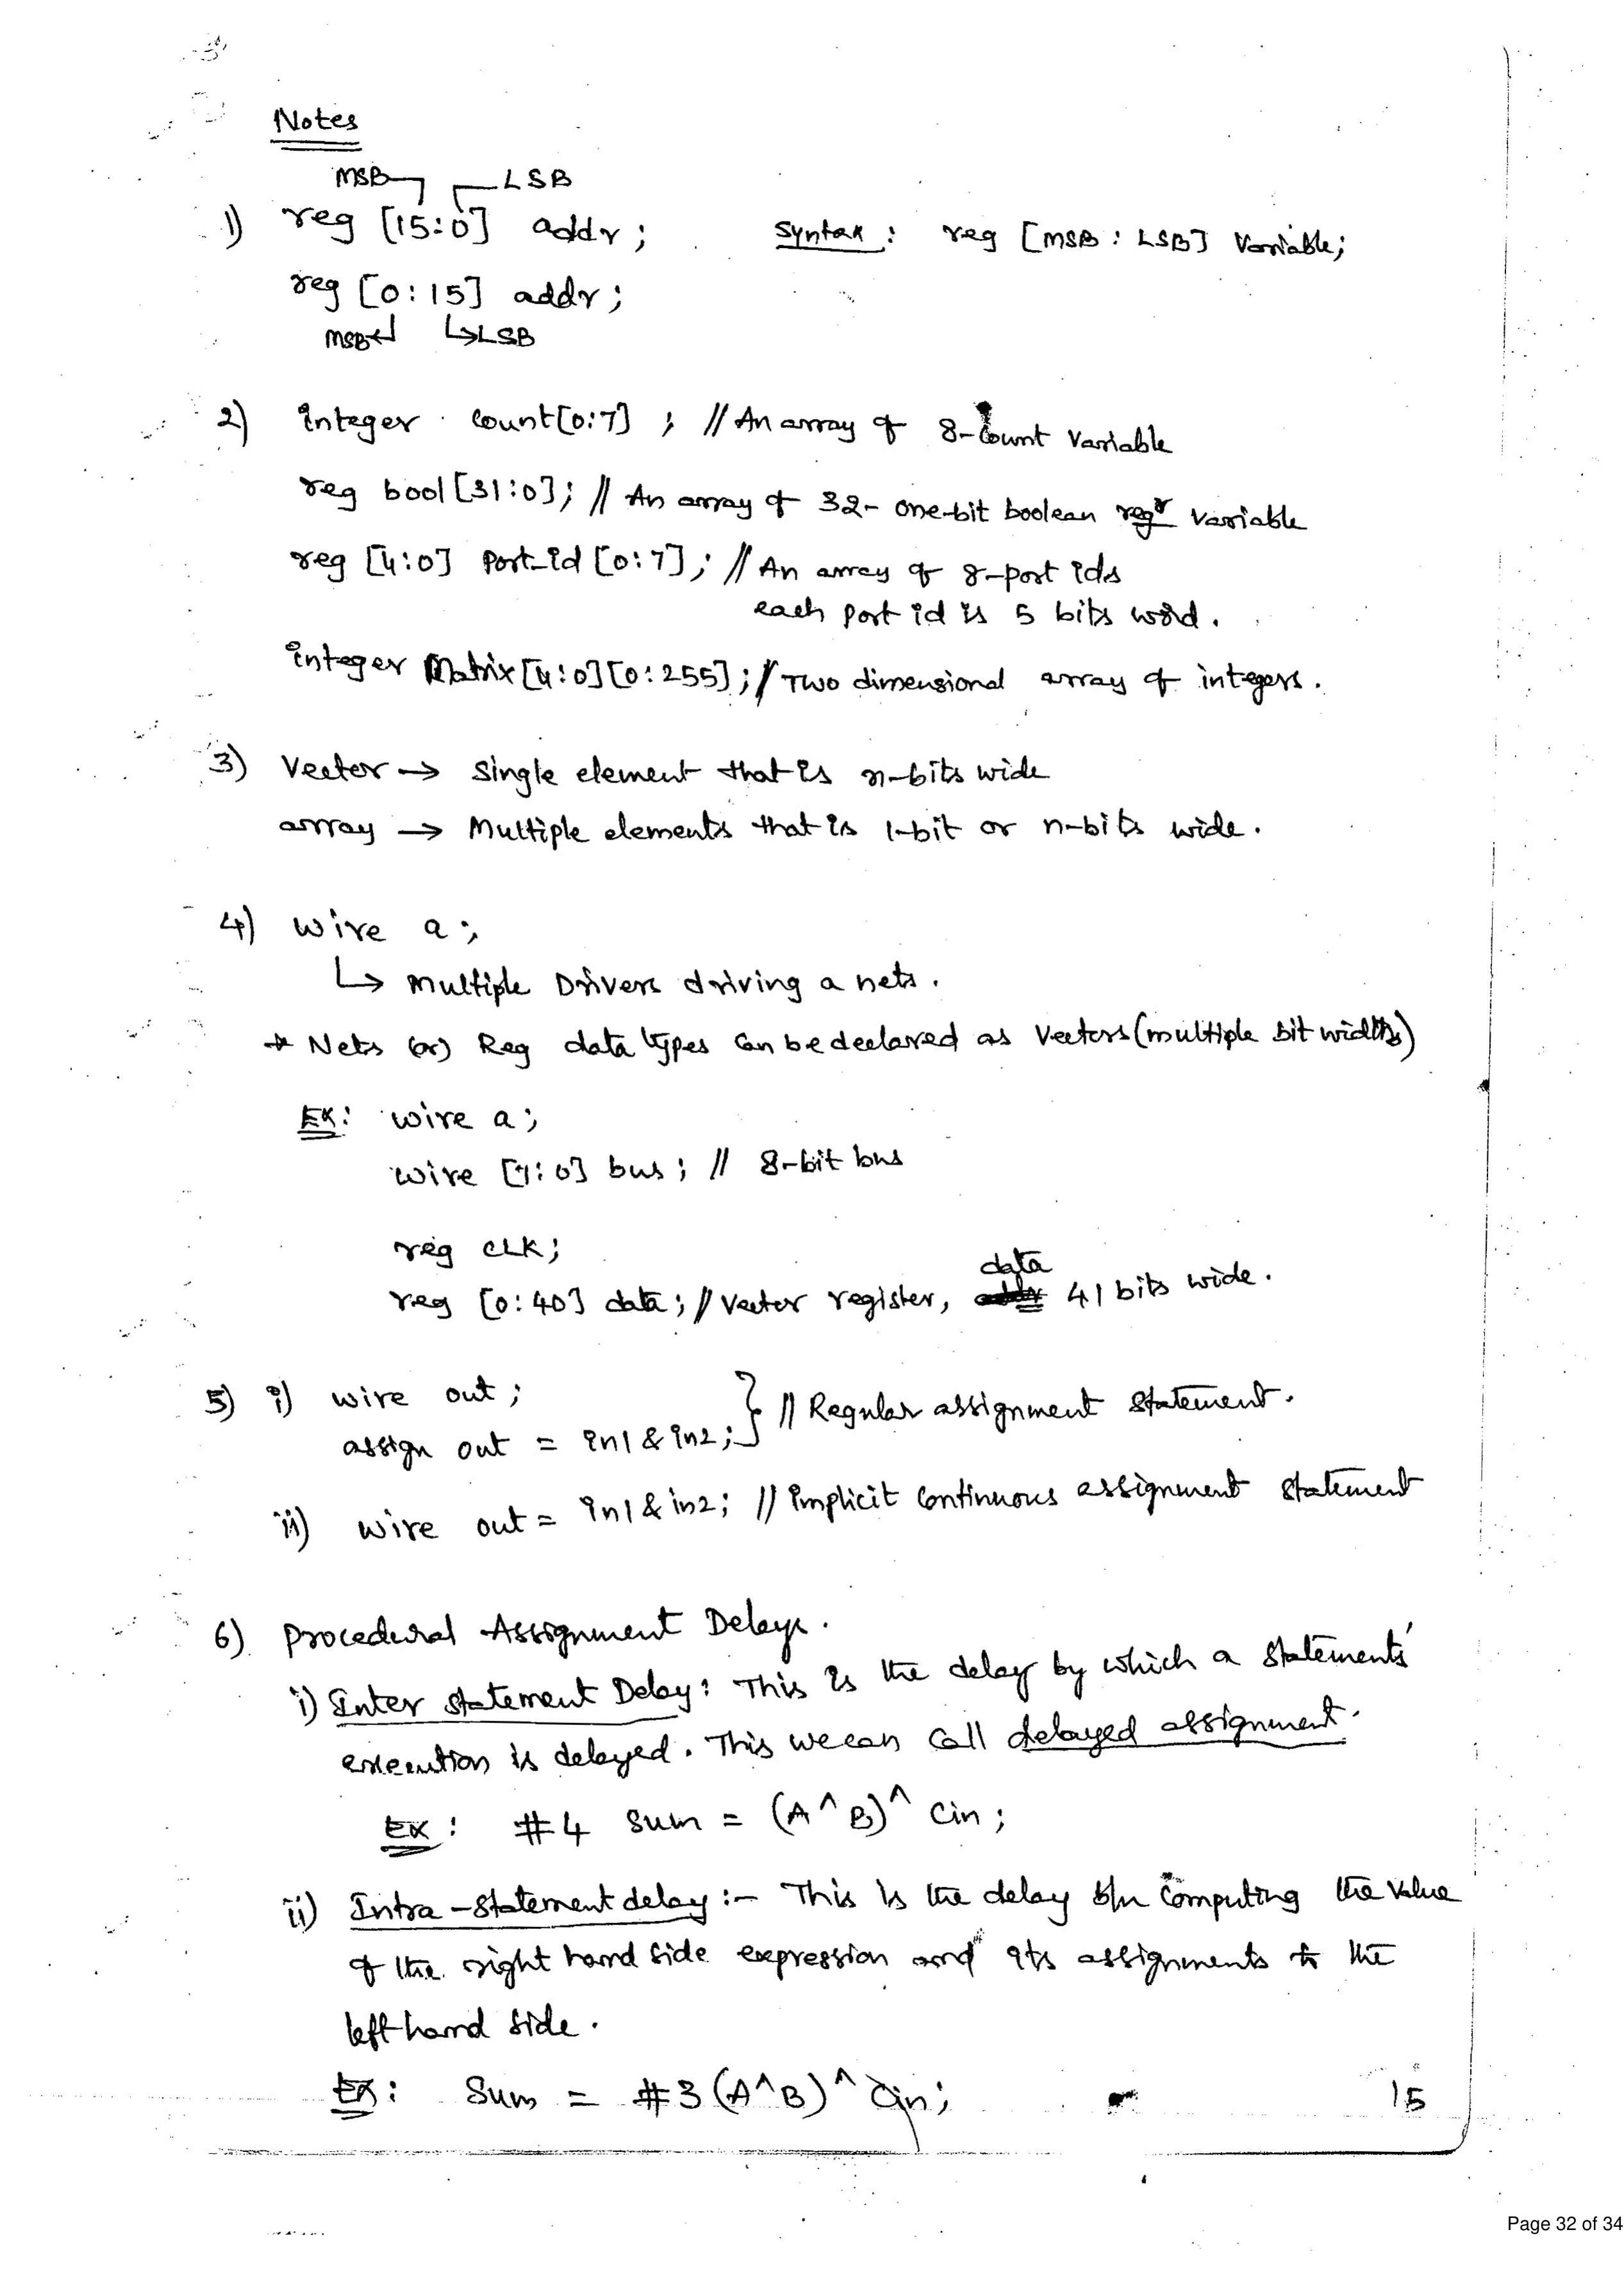 Notes
MSB LSB
1) reg [15:0] addr; Syntax : reg [MSB : LSB] Variable;
reg [0:15] addr;
MSB LSB
2) Integer count[0:7] ; // An array of 8-count variable
reg bool [31:0]; // An array of 32- one-bit boolean regr variable
reg [4:0] Port_id [0:7]; // An array of 8-port ids
each port id is 5 bits word.
integer Matrix[4:0][0:255]; // Two dimensional array of integers.
3) Vector → Single element that is n-bits wide
array → Multiple elements that is 1-bit or n-bits wide.
4) wire a;
↳ Multiple Drivers driving a nets.
* Nets (or) Reg data types can be declared as vectors (multiple bit widths)
EX: wire a;
wire [7:0] bus; // 8-bit bus
reg CLK;
data
reg [0:40] data; // vector register, 41 bits wide.
5) i) wire out;
assign out = in1 & in2; } // Regular assignment statement.
ii) wire out = in1 & in2; // Implicit continuous assignment statement
6) Procedural Assignment Delays.
i) Inter statement Delay: This is the delay by which a statements'
execution is delayed. This we can call delayed assignment.
EX: #4 sum = (A^B)^ Cin;
ii) Intra-statement delay :- This is the delay b/n computing the value
of the right hand side expression and its assignments to the
left hand side.
EX: Sum = #3 (A^B)^ Cin;
15
Page 32 of 34